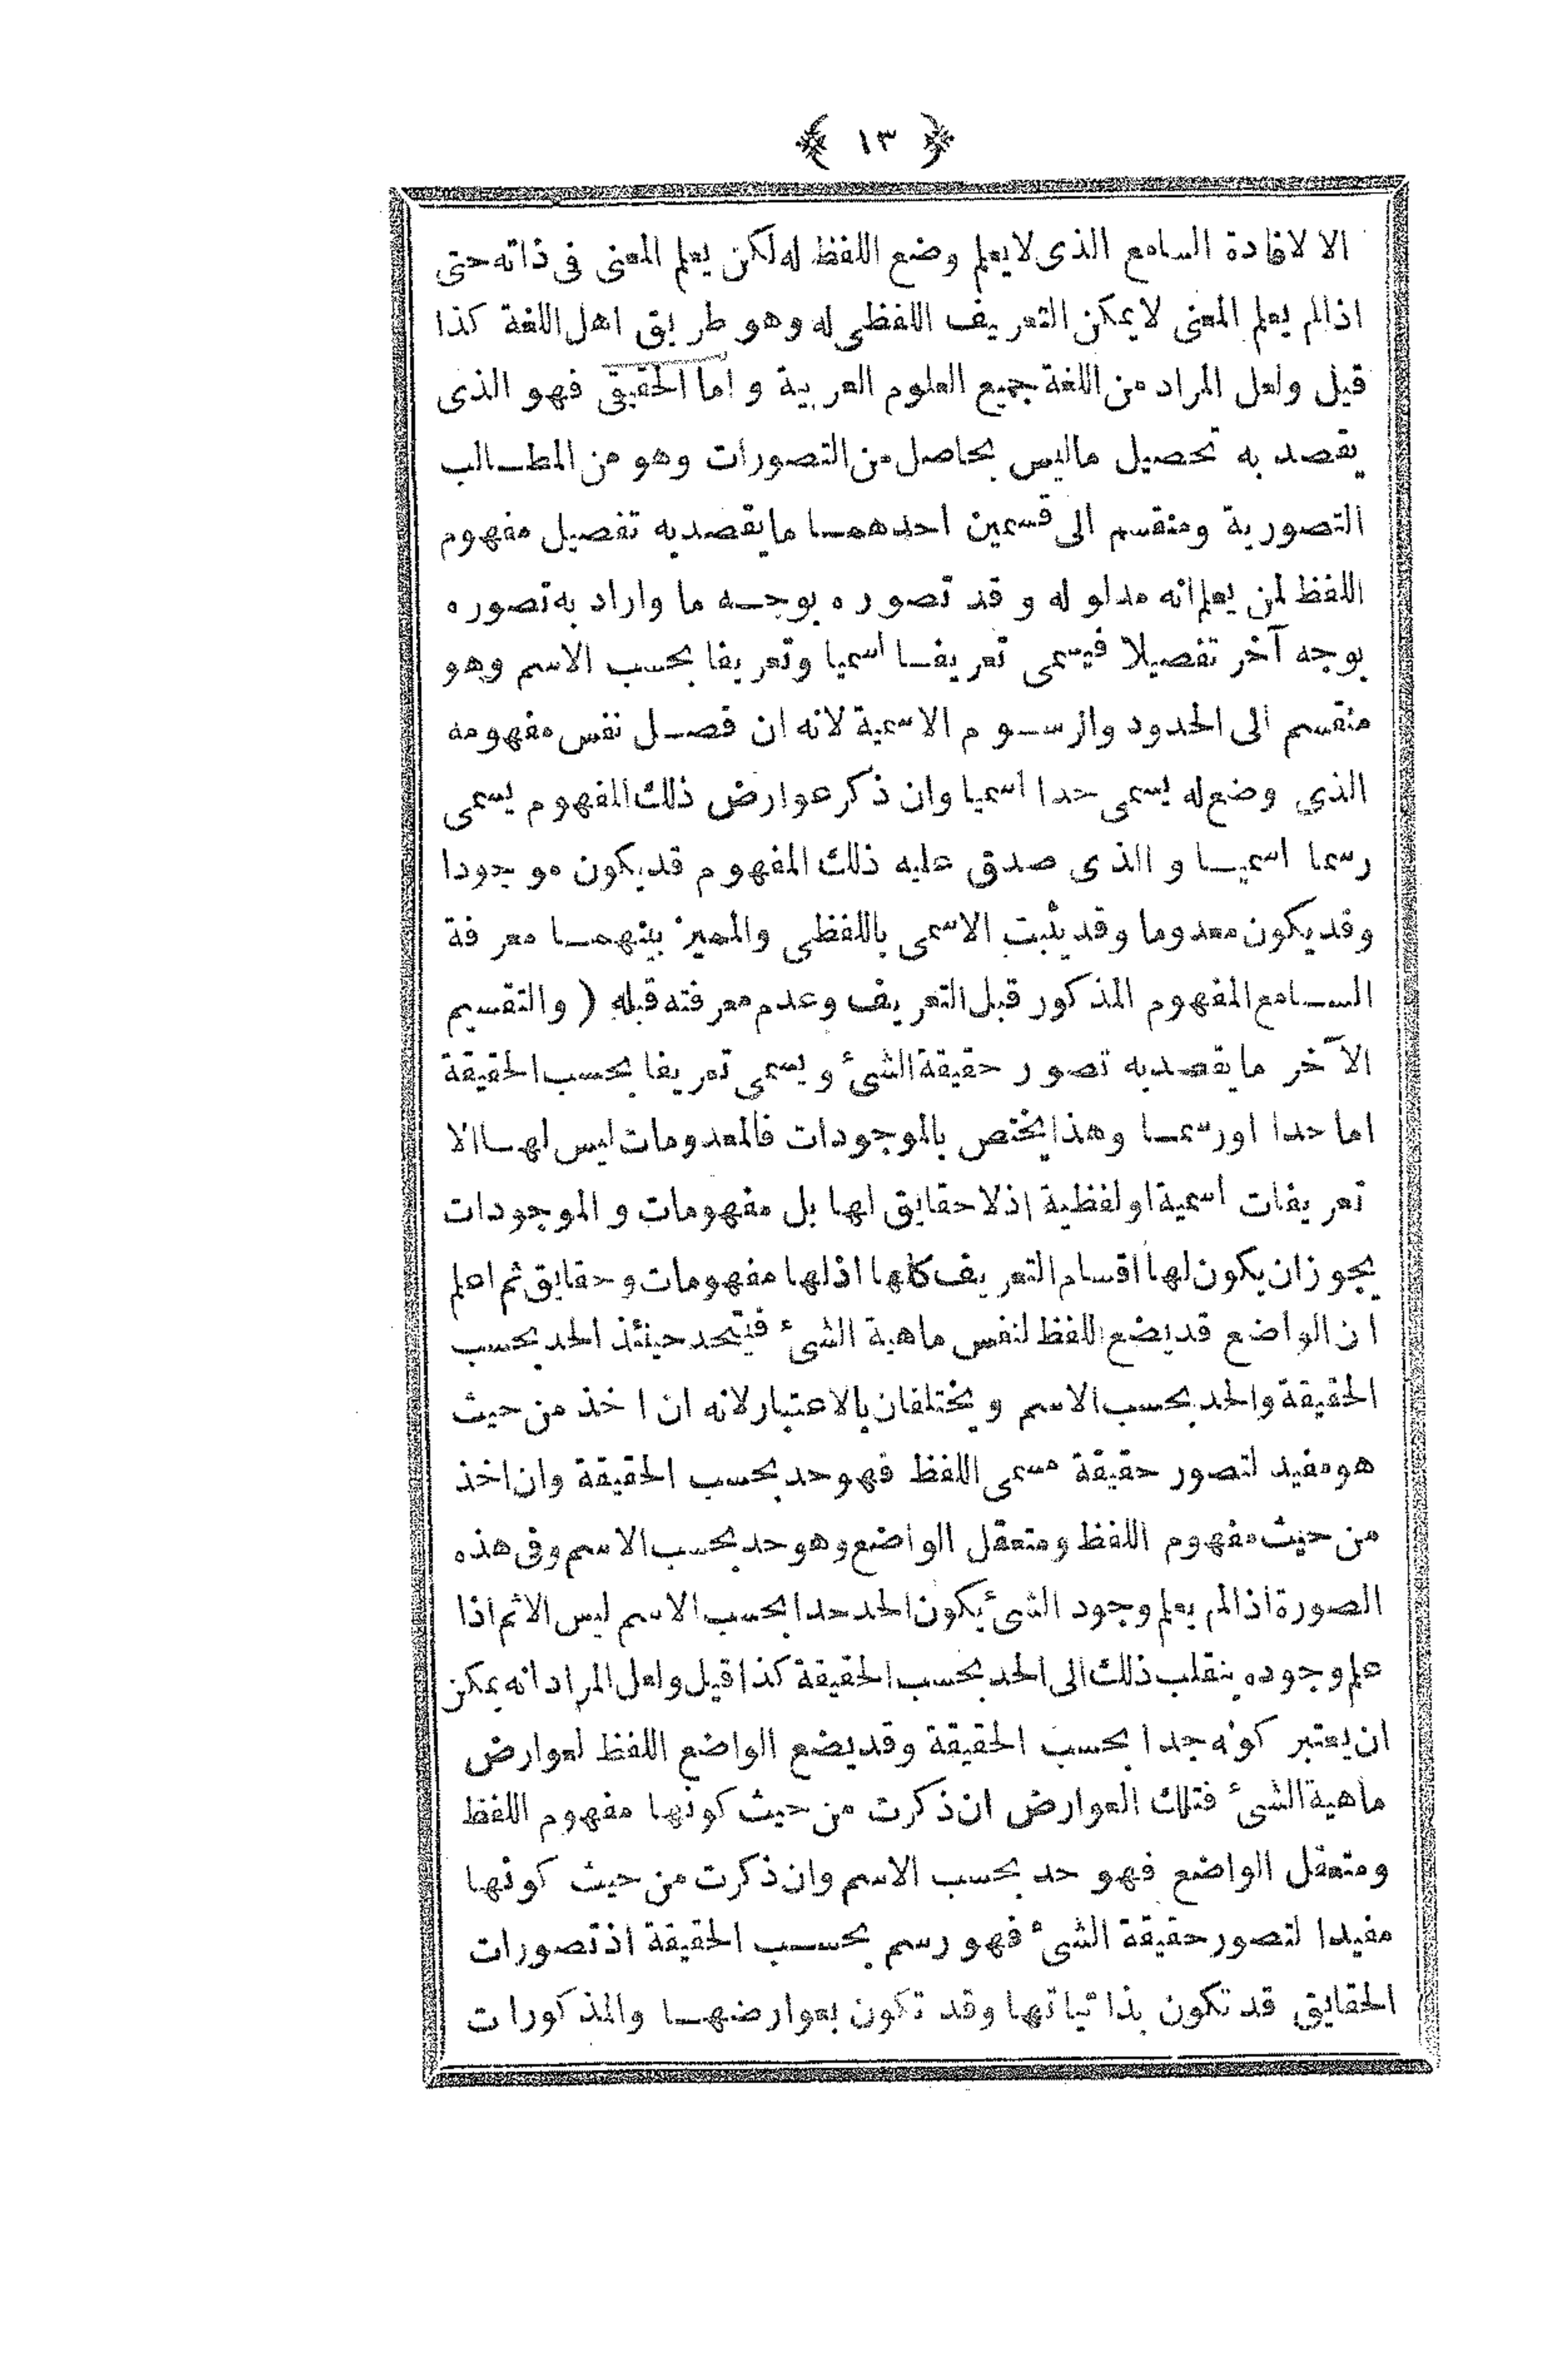 ﴿ ١٣ ﴾
الا لافادة السامع الذى لايعلم وضع اللفظ له لكن يعلم المعنى فى ذاته حتى
اذالم يعلم المعنى لايمكن التعريف اللفظى له وهو طريق اهل اللغة كذا
قيل ولعل المراد من اللغة جميع العلوم العربية واما الحقيقى فهو الذى
يقصد به تحصيل ماليس بحاصل من التصورات وهو من المطالب
التصورية ومنقسم الى قسمين احدهما مايقصدبه تفصيل مفهوم
اللفظ لمن يعلم انه مدلوله وقد تصوره بوجه ما واراد به تصوره
بوجه آخر تفصيلا فيسمى تعريفا اسميا وتعريفا بحسب الاسم وهو
منقسم الى الحدود والرسوم الاسمية لانه ان فصل نفس مفهومه
الذى وضع له يسمى حدا اسميا وان ذكر عوارض ذلك المفهوم يسمى
رسما اسميا والذى صدق عليه ذلك المفهوم قديكون موجودا
وقديكون معدوما وقديثبت الاسمى باللفظى والمميز بينهما معرفة
السامع المفهوم المذكور قبل التعريف وعدم معرفته قبله ( والتقسيم
الآخر مايقصدبه تصور حقيقة الشىء ويسمى تعريفا بحسب الحقيقة
اما حدا اورسما وهذا يختص بالموجودات فالمعدومات ليس لها الا
تعريفات اسمية اولفظية اذلاحقايق لها بل مفهومات والموجودات
يجوزان يكون لها اقسام التعريف كلها اذلها مفهومات وحقايق ثم اعلم
ان الواضع قديضع اللفظ لنفس ماهية الشىء فيتحد حينئذ الحد بحسب
الحقيقة والحد بحسب الاسم ويختلفان بالاعتبار لانه ان اخذ من حيث
هو مفيد لتصور حقيقة مسمى اللفظ فهو حد بحسب الحقيقة وان اخذ
من حيث مفهوم اللفظ ومتعقل الواضع وهو حد بحسب الاسم وفى هذه
الصورة اذالم يعلم وجود الشىء يكون الحد حدا بحسب الاسم ليس الا ثم اذا
علم وجوده ينقلب ذلك الى الحد بحسب الحقيقة كذا قيل ولعل المراد انه يمكن
ان يعتبر كونه حدا بحسب الحقيقة وقديضع الواضع اللفظ لعوارض
ماهية الشىء فتلك العوارض ان ذكرت من حيث كونها مفهوم اللفظ
ومتعقل الواضع فهو حد بحسب الاسم وان ذكرت من حيث كونها
مفيدا لتصور حقيقة الشىء فهو رسم بحسب الحقيقة اذ تصورات
الحقايق قد تكون بذاتياتها وقد تكون بعوارضها والمذكورات